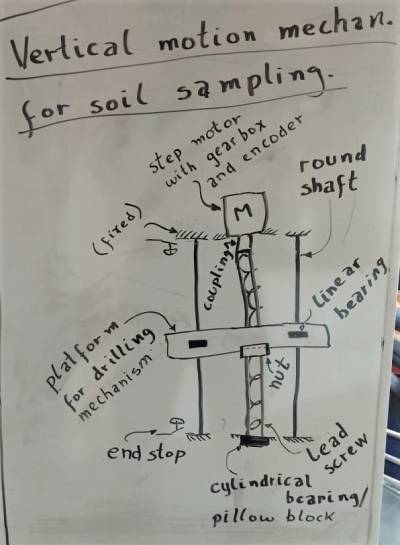 Vertical motion mechan.
for soil sampling.
step motor
with gearbox
and encoder
round
shaft
(fixed)
M
coupling
linear
bearing
platform
for drilling
mechanism
nut
end stop
Lead
screw
cylindrical
bearing/
pillow block